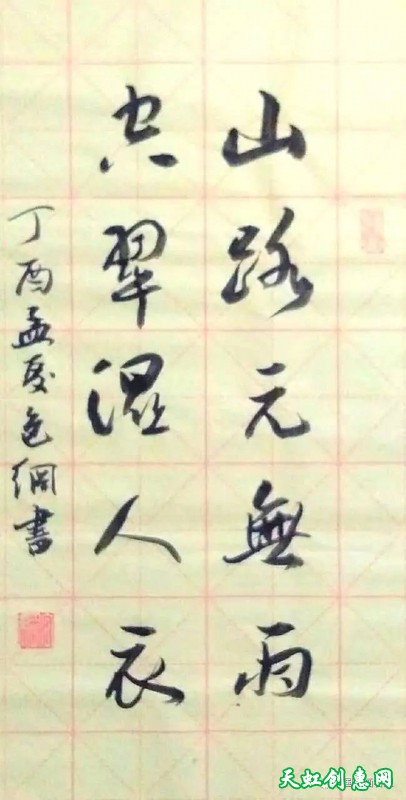 山路元無雨
空翠濕人衣
丁酉孟夏色綱書
天虹创惠网